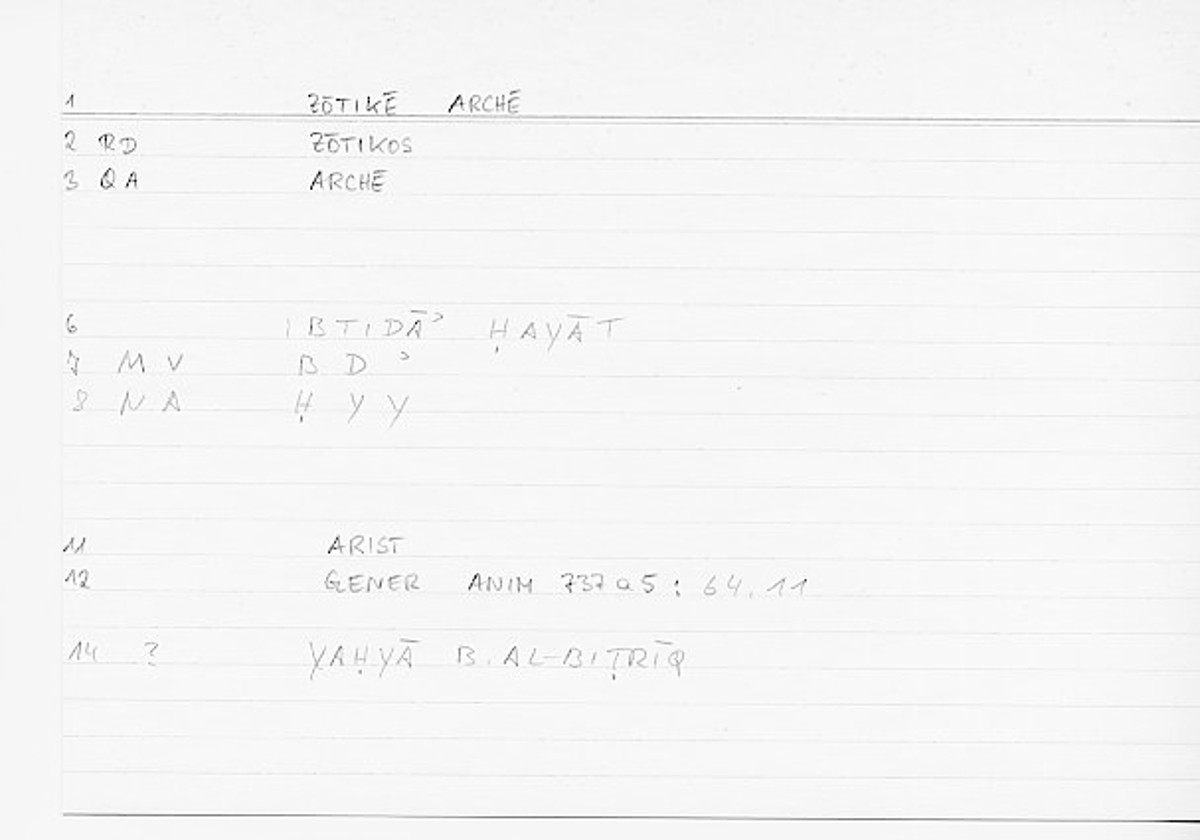 1 ZŌTIKĒ ARCHĒ
2 RD ZŌTIKOS
3 QA ARCHĒ
6 IBTIDĀʾ ḤAYĀT
7 MV B D ʾ
8 NA Ḥ Y Y
11 ARIST
12 GENER ANIM 737a5 : 64.11
14 ? YAḤYĀ B. AL-BIṬRĪQ